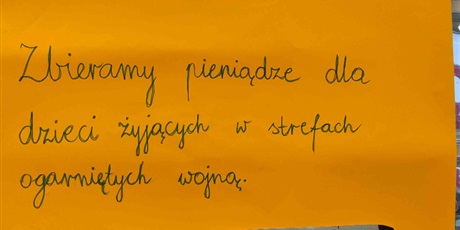 Zbieramy pieniądze dla
dzieci żyjących w strefach
ogarniętych wojną.